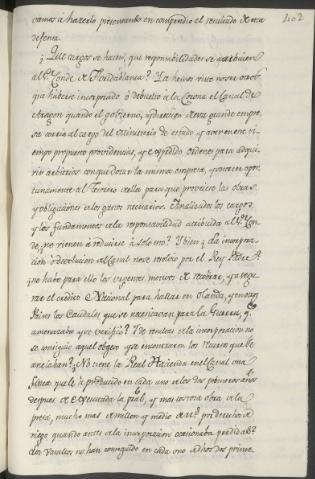 402
vamos à hacerlo presentando en compendio el resultado de esta
defensa.
¿Qué cargos se hacen, que responsabilidades se atribuien
al Sr. Conde de Floridablanca? Ya hemos visto no ser otro
que haberse incorporado ò debuelto a la Corona el Canal de
Aragon quando el gobierno, y direccion de esta grande empre-
sa corria al cargo del ministerio de estado, y al mismo ti-
empo propuesto providencias, y expedido ordenes para adqui-
rir arbitrios con que dotar la misma empresa, y
tunamente al para que proveiese las obras
y obligaciones a los gastos necesarios. Analizados los cargos
y los fundamentos de la responsabilidad atribuida al Sr. Con-
de, no vienen à reducirse à solo uno? Y bien ¿La incorpora-
cion ò devolucion del Canal no se resolvio por el Rey Padre?
¿no hubo para ello los urgentes motivos de y asegu-
rar el credito Nacional para hallar en Olanda, y
los Caudales que se necesitaban para la Guerra, que
amenazaba y se verificó? ¿De resultas de la incorporacion no
se consiguió aquel objeto y se encontraron los que
anelaban? ¿No tiene la Real Hacienda en el Canal una
finca que le à producido en cada uno de los dos primeros años
despues de executada la y mas costosa obra de la
presa, mucho mas de millon y medio de rs. por derechos de
riego quando antes de la incorporacion ocasionaba perdidas?
¿Los Vasallos no han conseguido en cada uno de dhos dos prime-